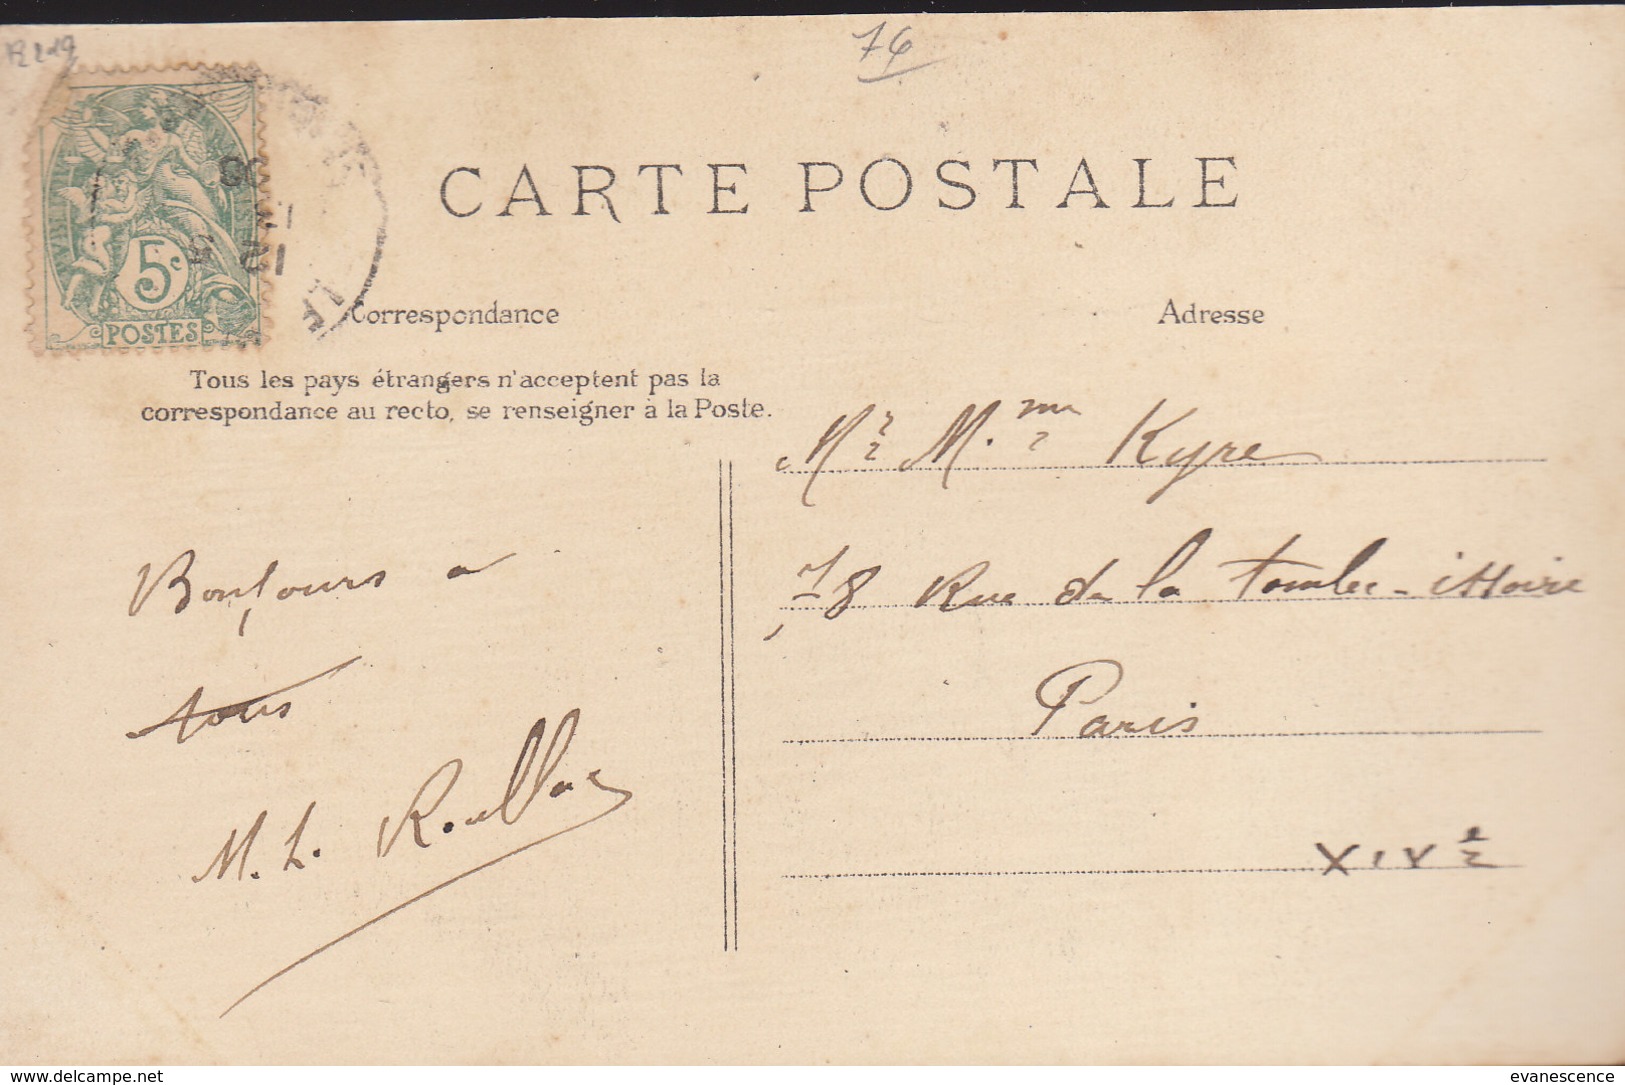 76
CARTE POSTALE
5c
POSTES
Correspondance
Adresse
Tous les pays étrangers n'acceptent pas la
correspondance au recto, se renseigner à la Poste.
Mr Mme Kyre
78 Rue de la Tombe-issoire
Paris
XIVe
Bonjours a
tous
M. L. Roullac
www.delcampe.net
evanescence